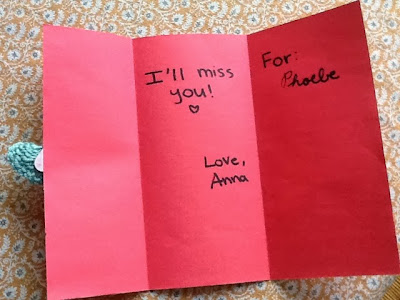 I'll miss
you!
♡
Love,
Anna
For:
Phoebe